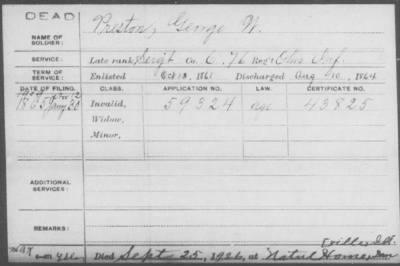 DEAD
NAME OF SOLDIER: Preston, George W.
SERVICE: Late rank, Sergt Co. C, 76 Reg't Ohio Inf.
TERM OF SERVICE: Enlisted Oct 10, 1861 Discharged Aug 10, 1864
DATE OF FILING. CLASS. APPLICATION NO. LAW. CERTIFICATE NO.
1865 Jany 30 Invalid, 59324 43825
Widow,
Minor,
ADDITIONAL SERVICES:
REMARKS:
ville, Ill.
Died Sept 25, 1926, at Natnl Home,